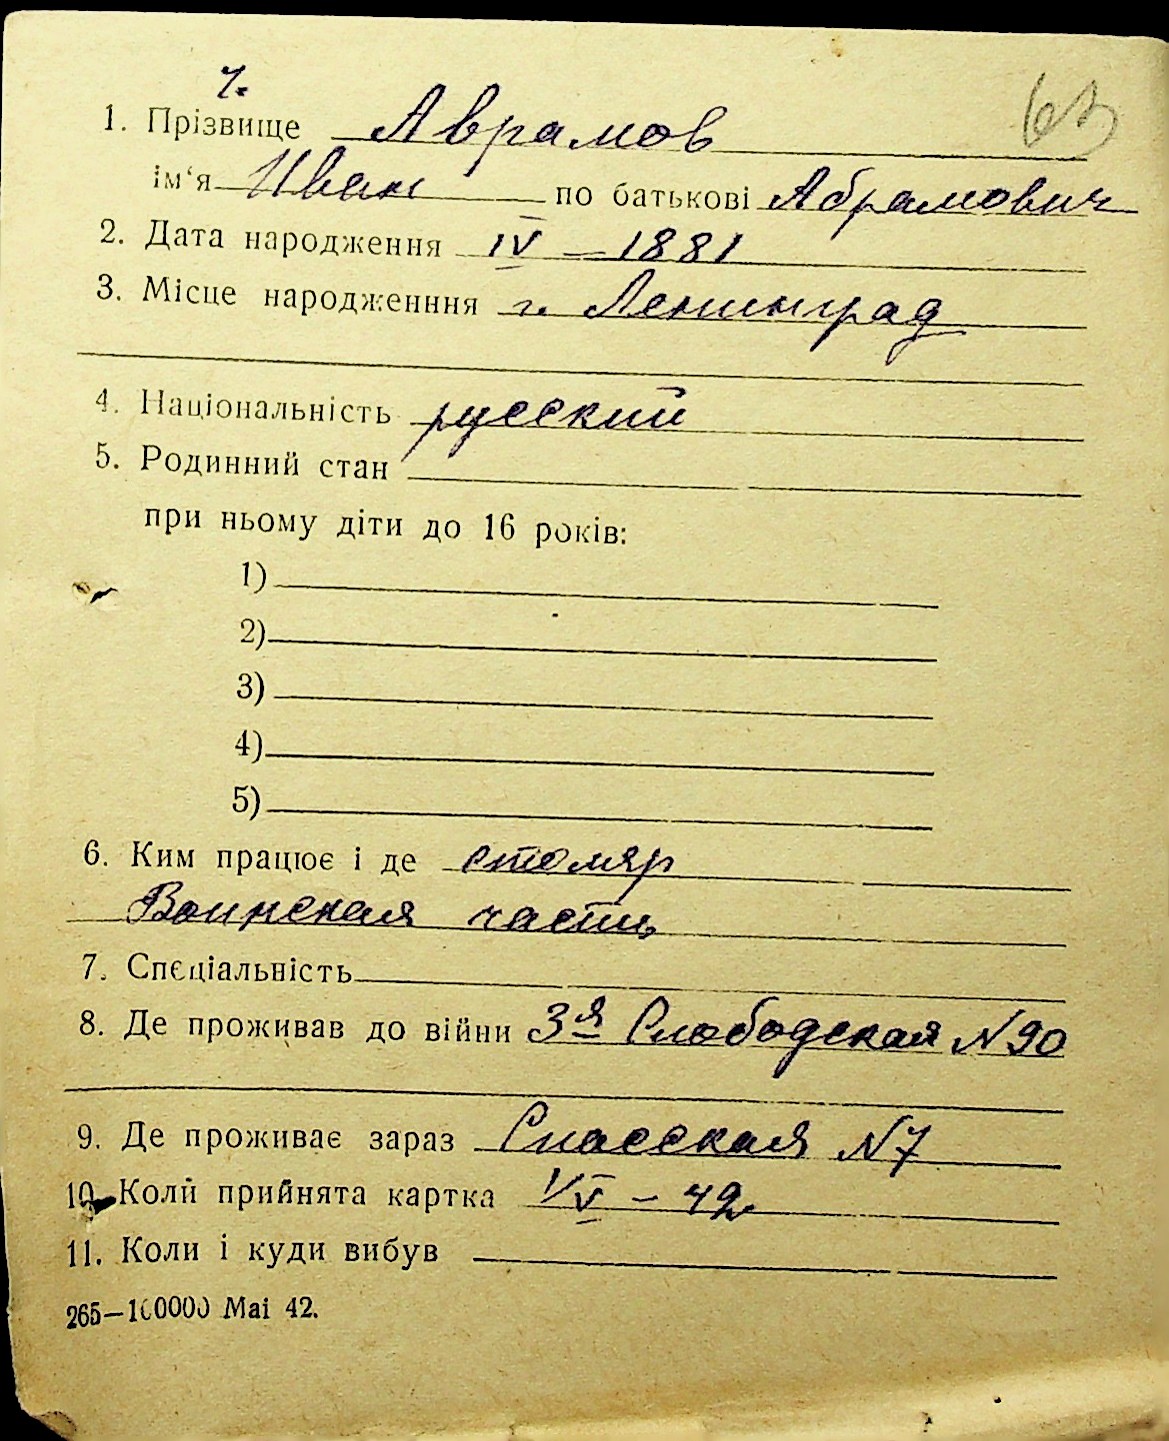 ч.
63
1. Прізвище Аврамов
ім‘я Иван по батькові Абрамович
2. Дата народження IV – 1881
3. Місце народженння г. Ленинград
4. Національність русский
5. Родинний стан
при ньому діти до 16 років:
1)
2)
3)
4)
5)
6. Ким працює і де столяр
Воинская часть
7. Спеціальність
8. Де проживав до війни 3я Слободская N 90
9. Де проживає зараз Спасская N 7
10. Коли прийнята картка 1/V – 42
11. Коли і куди вибув
265—100000 Маі 42.